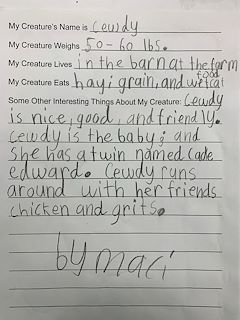 My Creature's Name is Cewdy
My Creature Weighs 50-60 lbs.
My Creature Lives in the barn at the farm
My Creature Eats hay; grain, and wet cat food
Some Other Interesting Things About My Creature: Cewdy
is nice, good, and friendly.
Cewdy is the baby; and
she has a twin named Cade
edward. Cewdy runs
around with her friends
chicken and grits.
by maci